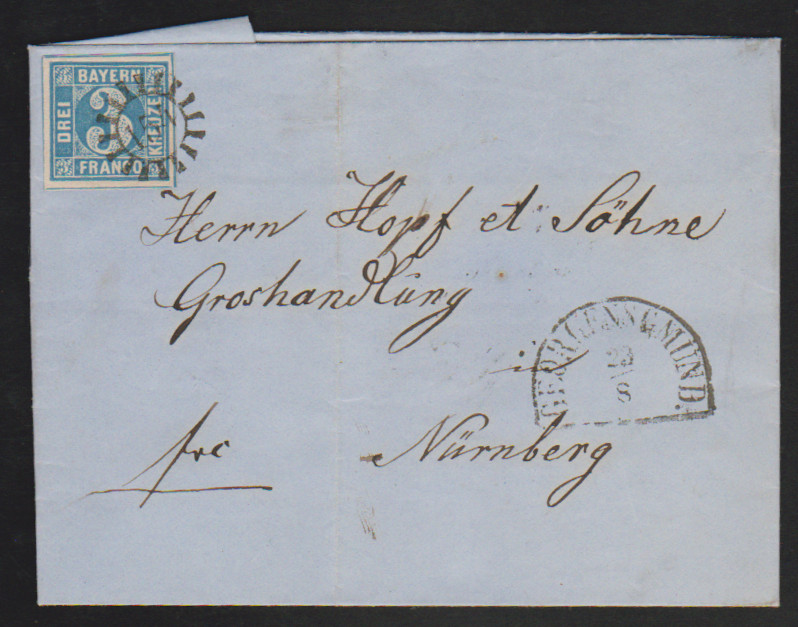 BAYERN
DREI
3
KREUZER
FRANCO
Herrn Hopf et Söhne
Groshandlung
in
Nürnberg
frc
GEORGENSGMÜND.
23
8